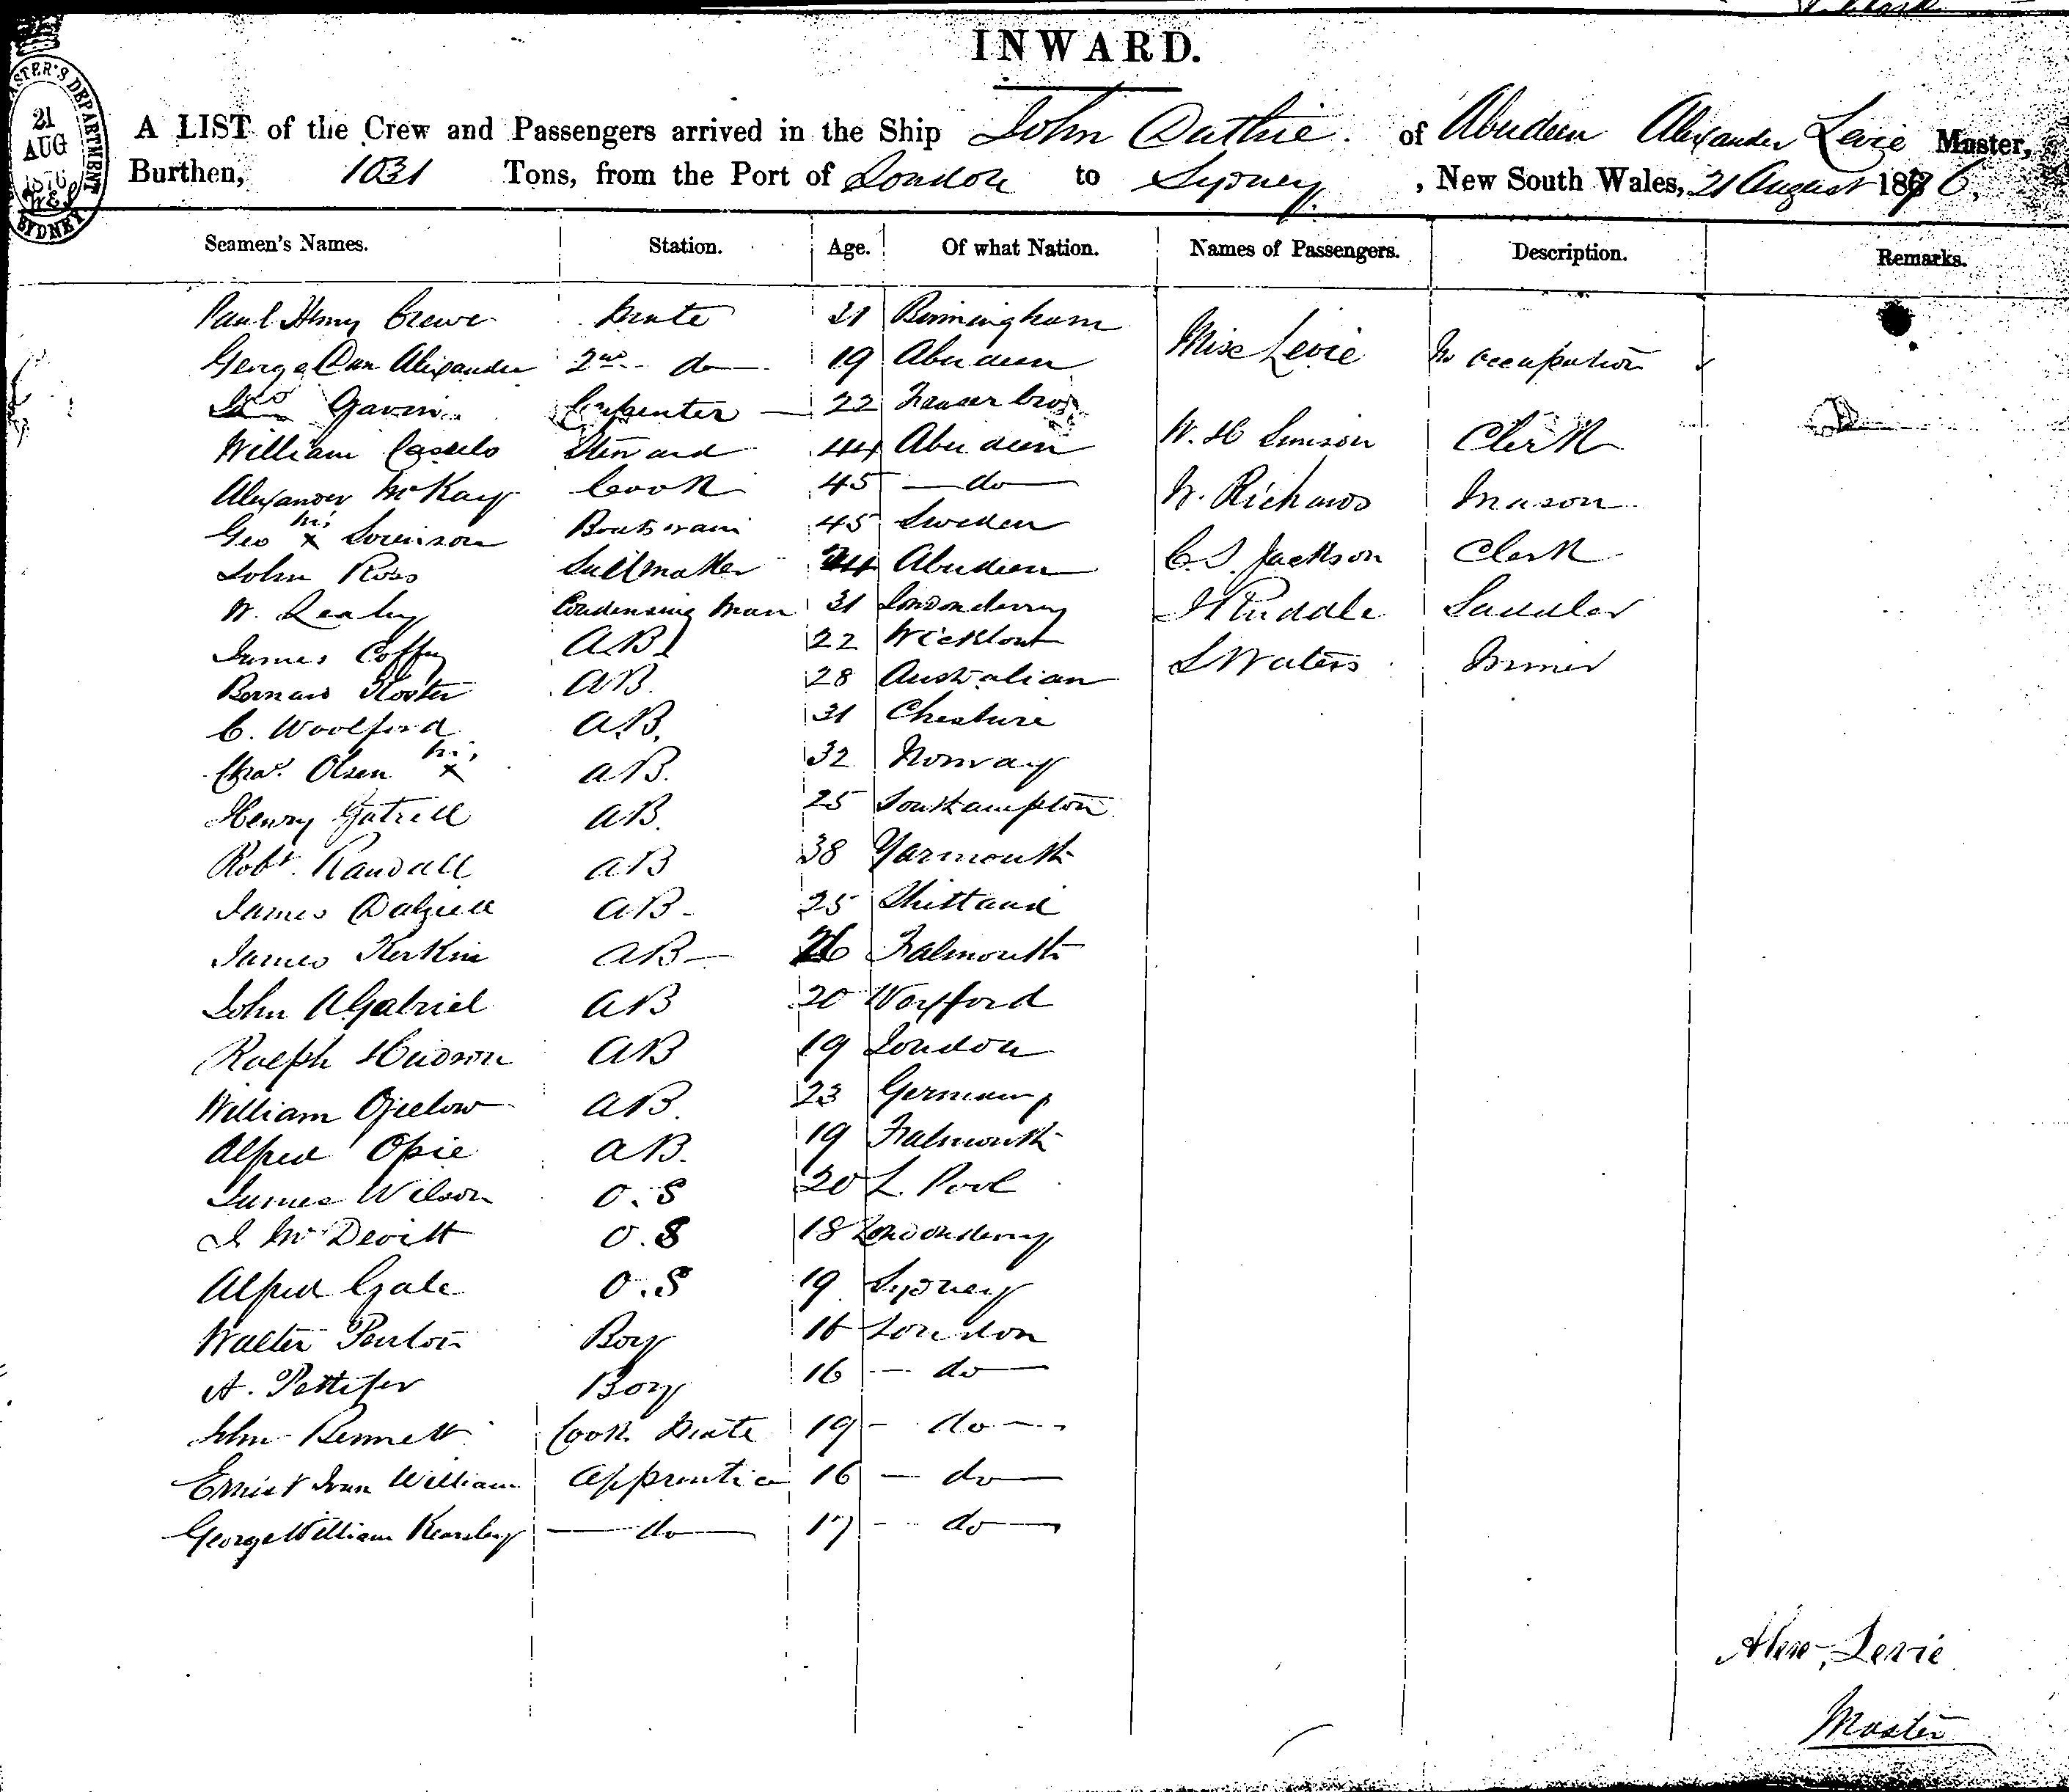 INWARD.
A LIST of the Crew and Passengers arrived in the Ship John Duthie of Aberdeen Alexander Levie Master,
Burthen, 1031 Tons, from the Port of London to Sydney, New South Wales, 21 August 1876,
21
AUG
1876
SYDNEY
Seamen's Names. Station. Age. Of what Nation. Names of Passengers. Description. Remarks.
Paul Henry Crewe Mate 21 Birmingham
George Dun Alexander 2nd do 19 Aberdeen Miss Levie No occupation
Gavin Carpenter 22 Fraserbro
William Cassels Steward 44 Aberdeen W. H Simson Clerk
Alexander McKay Cook 45 do W. Richards Mason
Geo his x Sorinson Boatswain 45 Sweden
John Ross Sailmaker 44 Aberdeen C. S. Jackson Clerk
W. Condensing Man 31 Londonderry J Ruddle Saddler
James Coffey AB 22 Wicklow
Bernard AB. 28 Australian S Waters
C. Woolford AB. 31 Cheshire
Chas. Olsen his x AB. 32 Norway
Henry Gatrell AB. 25 Southampton
Robt. Randall AB 38 Yarmouth
James Dalziell AB 25 Shetland
James Kerkin AB 26 Falmouth
John A Gabriel AB 20 Wexford
Ralph Hudson AB 19 London
William AB. 23 Germany
Alfred Opie AB. 19 Falmouth
James Wilson O.S 20 L. Pool
J McDevitt O.S 18 Londonderry
Alfred Gale O.S 19 Sydney
Walter Penton Boy 16 London
A. Pettifer Boy 16 do
John Bennett Cook Mate 19 do
Ernest Ivan William Apprentice 16 do
George William Kearsley do 17 do
Alexr. Levie
Master